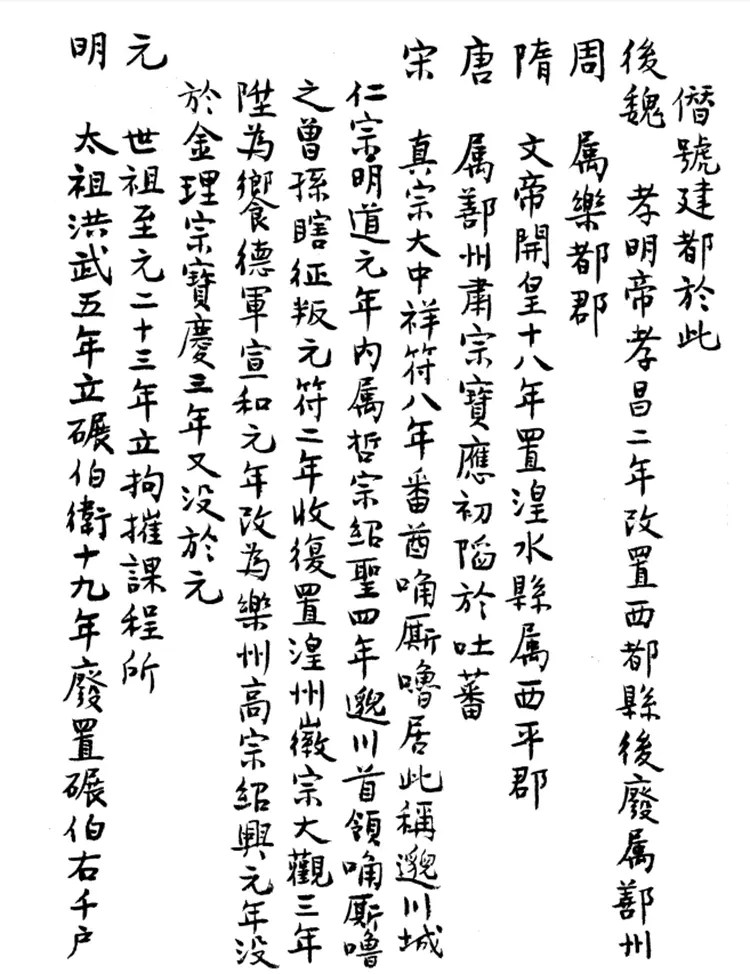 僭號建都於此
後魏 孝明帝孝昌二年改置西都縣後廢属鄯州
周 属樂都郡
隋 文帝開皇十八年置湟水縣属西平郡
唐 属鄯州肅宗寶應初陷於吐蕃
宋 真宗大中祥符八年番酋唃厮嚕居此稱邈川城
仁宗明道元年内属哲宗紹聖四年邈川首領唃厮嚕
之曾孫瞎征叛元符二年收復置湟州徽宗大觀三年
陞為饗德軍宣和元年改為樂州高宗紹興元年没
於金理宗寶慶三年又没於元
元 世祖至元二十三年立拘摧課程所
明 太祖洪武五年立碾伯衛十九年廢置碾伯右千户